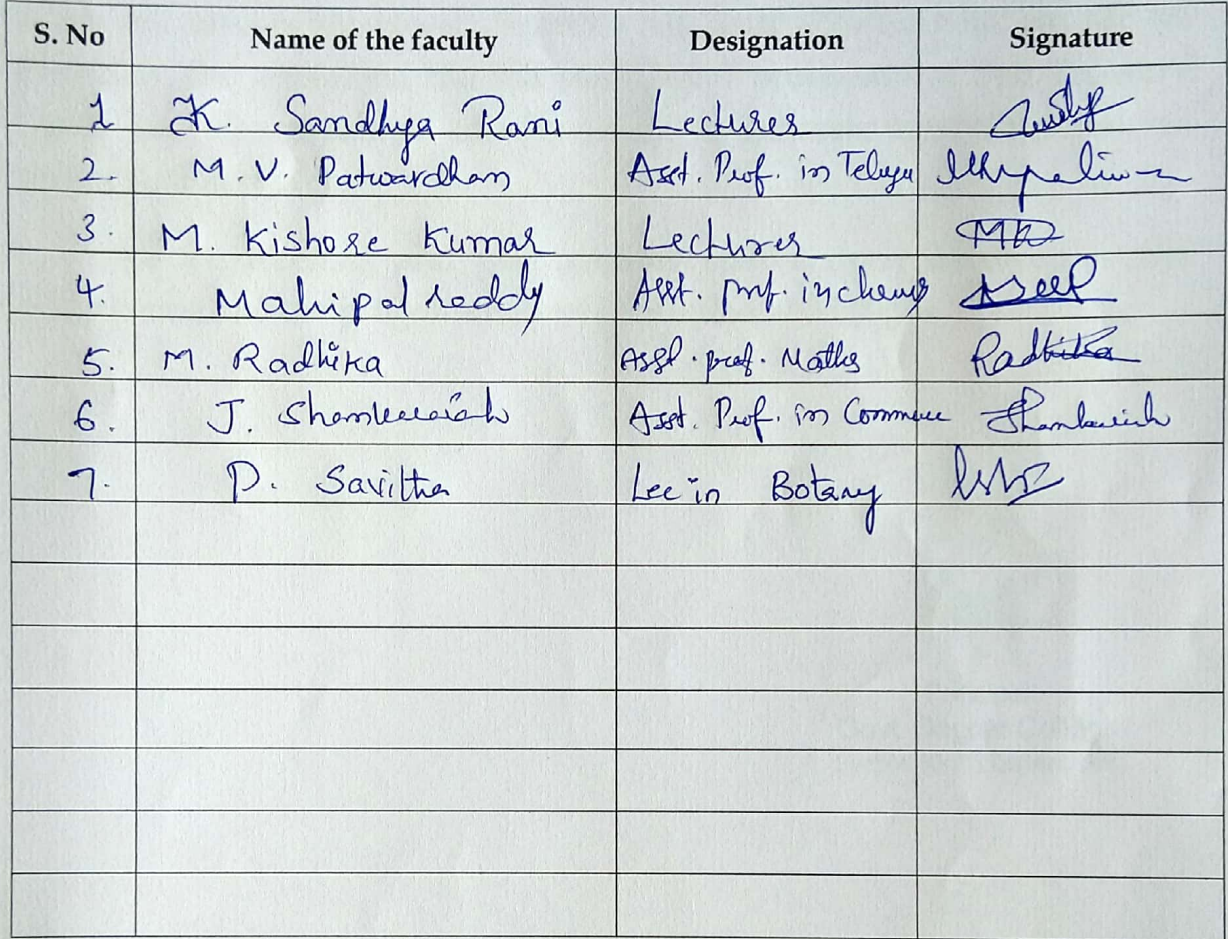 S. No Name of the faculty Designation Signature
1 K. Sandhya Rani Lecturer
2. M. V. Patwardham Asst. Prof. in Telugu
3. M. Kishore Kumar Lecturer
4. Mahipal reddy Asst. prof. in chem
5. M. Radhika Asst. prof. Maths Radhika
6. J. Shankaraiah Asst. Prof. in Commerce Shankaraiah
7. D. Savitha Lec in Botany